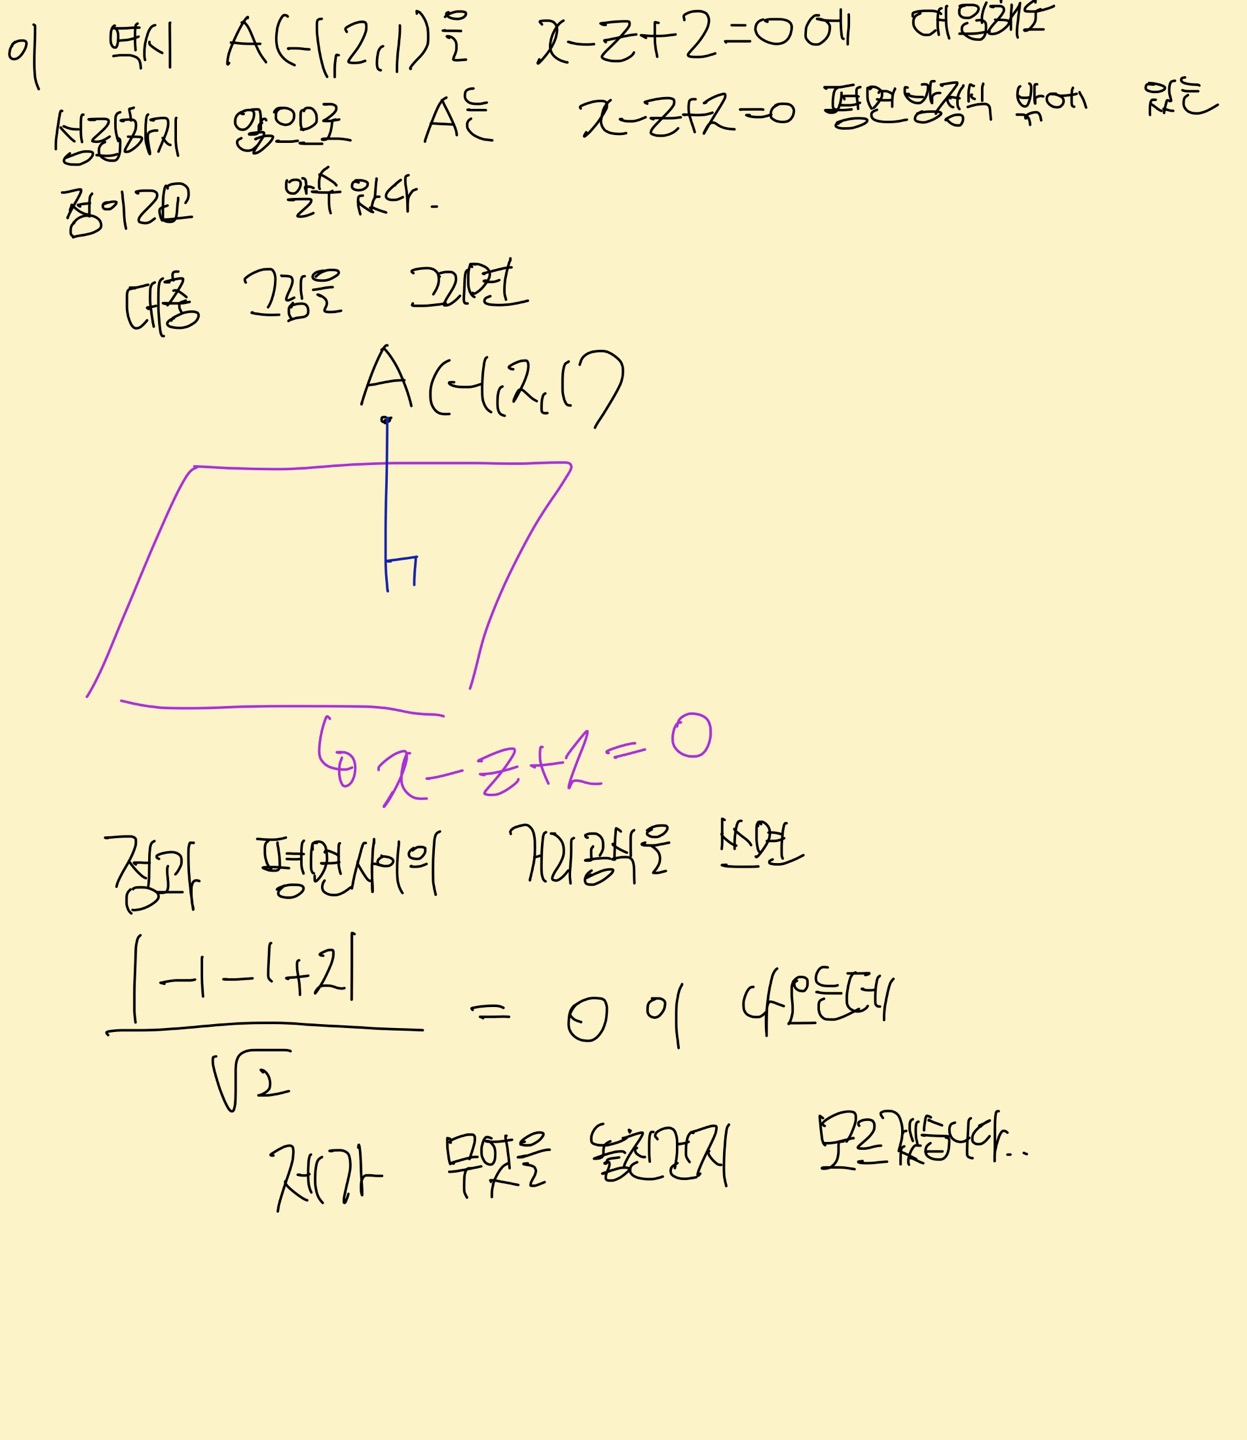 이 역시 A(-1,2,1)을 x-z+2=0에 대입해도
성립하지 않으므로 A는 x-z+2=0 평면방정식 밖에 있는
점이라고 알수있다.
대충 그림을 그리면
A(-1,2,1)
x-z+2=0
점과 평면사이의 거리공식을 쓰면
|-1-1+2|/√2 = 0이 나오는데
제가 무엇을 놓친건지 모르겠습니다..